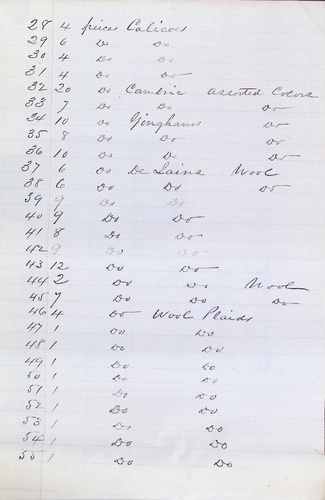 28 4 pieces Calicoes
29 6 Do Do
30 4 Do Do
31 4 Do Do
32 20 Do Cambric assorted Colors
33 7 Do Do Do
34 10 Do Ginghams Do
35 8 Do Do Do
36 10 Do Do Do
37 6 Do De Lains Wool
38 6 Do Do Do
39 9 Do Do
40 9 Do Do
41 8 Do Do
42 9 Do Do
43 12 Do Do
44 2 Do Do Wool
45 7 Do Do Do
46 4 Do Wool Plaids
47 1 Do Do
48 1 Do Do
49 1 Do Do
50 1 Do Do
51 1 Do Do
52 1 Do Do
53 1 Do Do
54 1 Do Do
55 1 Do Do